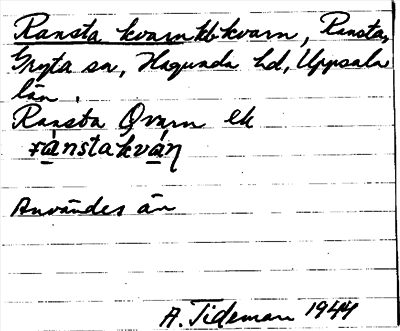 Ransta kvarn kb. kvarn, Ransta,
Gryta sn, Hagunda hd, Uppsala
län.
Ransta Qvarn ek
ránstakván
Användes än
A. Tideman 1944